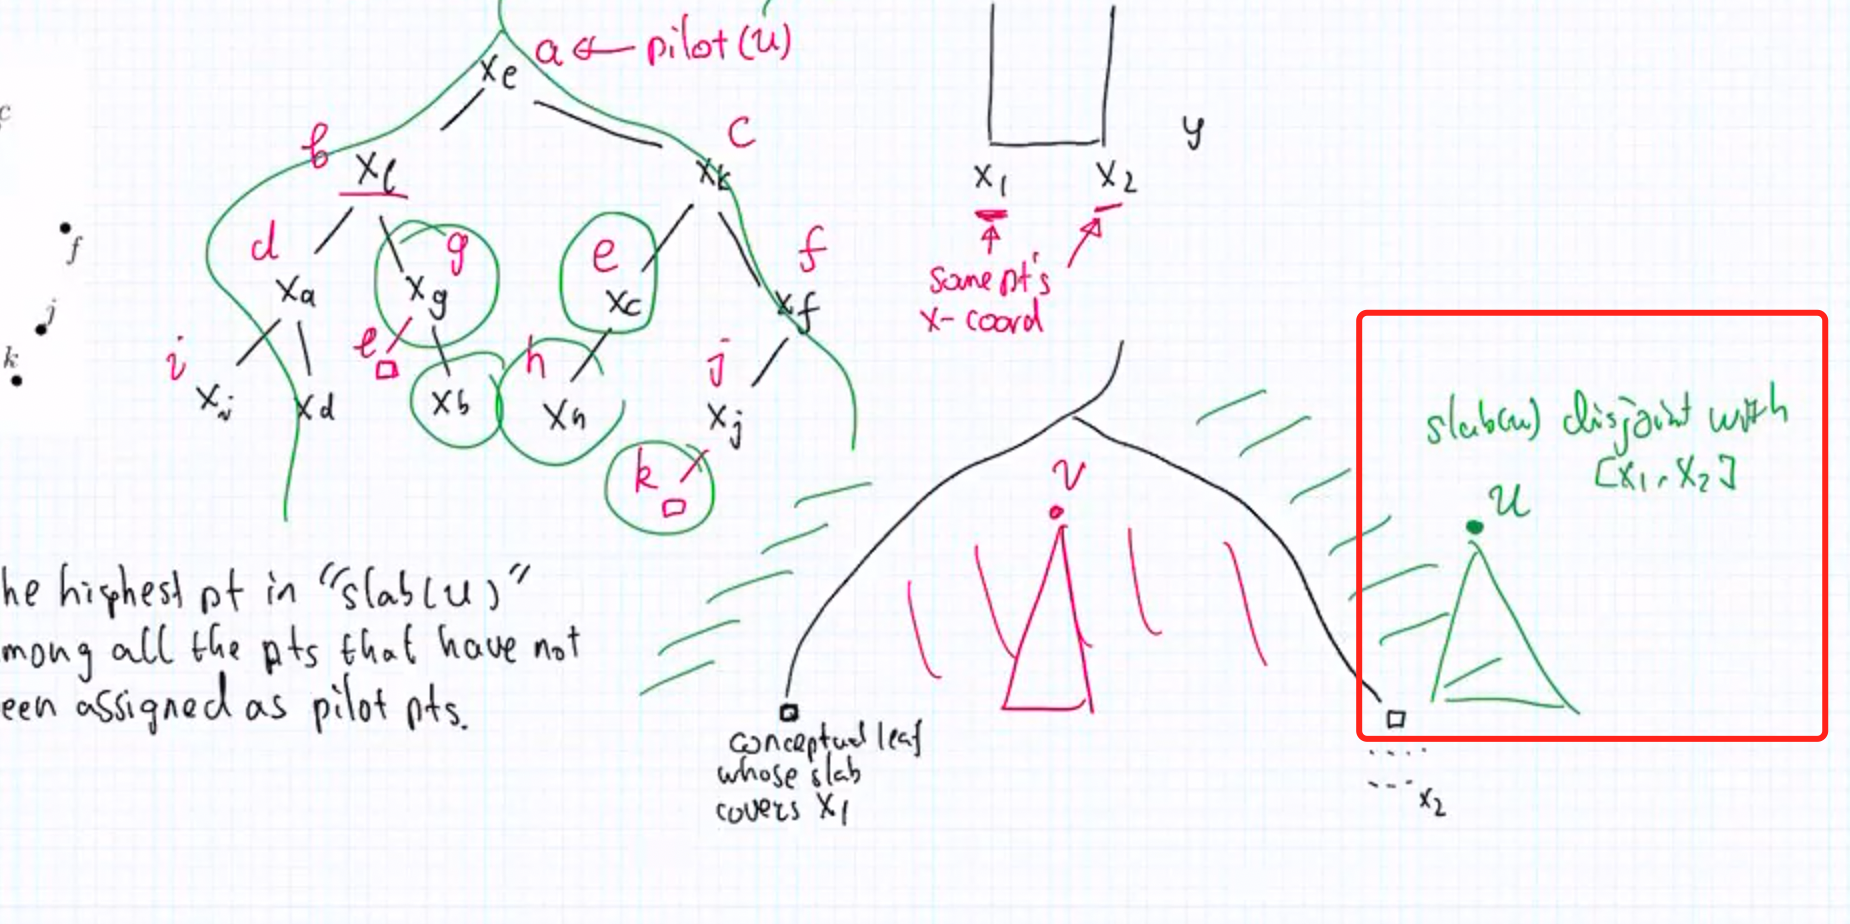 c
f
j
k
a ← pilot(u)
xe
b
c
xl
xk
d
g
e
f
xa
xg
xc
xf
i
e
h
j
xi
xd
xb
xh
xj
k
he highest pt in "slab(u)"
mong all the pts that have not
een assigned as pilot pts.
y
x1
x2
some pt's
x-coord
v
conceptual leaf
whose slab
covers x1
x2
slab(u) disjoint with
[x1, x2]
u